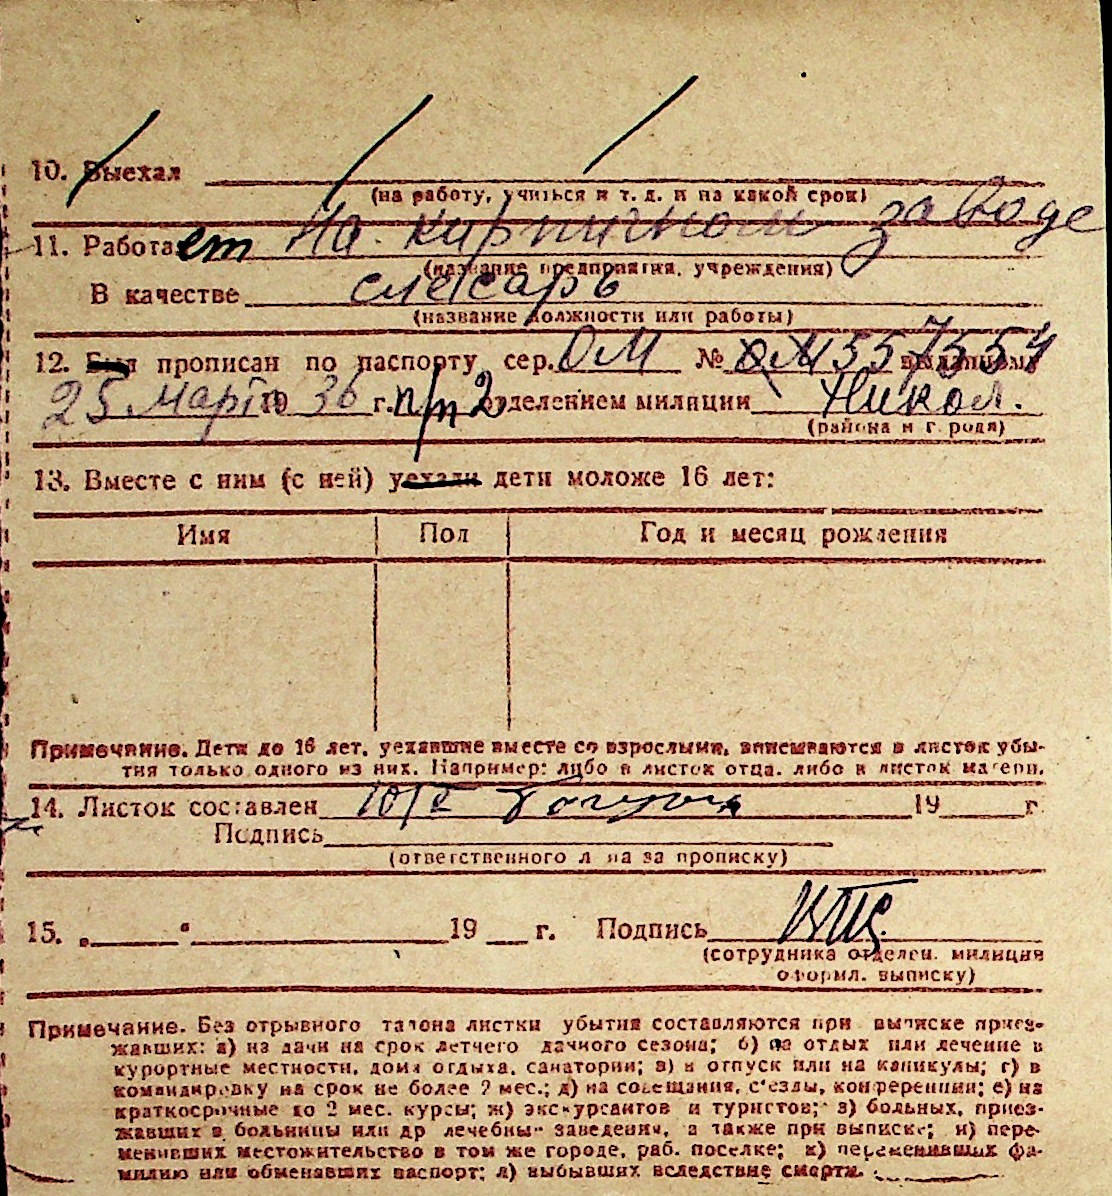 10. Выехал
(на работу, учиться и т. д. и на какой срок)
11. Работает На. кирпичном заводе
(название предприятия, учреждения)
В качестве слесарь
(название должности или работы)
12. Был прописан по паспорту сер. ОМ № ОМ 557554 выданному
25 Марта 19 36 г. п/т 2 отделением милиции Никол.
(района и города)
13. Вместе с ним (с ней) уехали дети моложе 16 лет:
Имя Пол Год и месяц рождения
Примечание. Дети до 16 лет, уехавшие вместе со взрослыми, вписываются в листок убы-
тия только одного из них. Например: либо в листок отца, либо в листок матери.
14. Листок составлен 10/I 19 г.
Подпись
(ответственного лица за прописку)
15. „ " 19 г. Подпись
(сотрудника отделен. милиции
оформл. выписку)
Примечание. Без отрывного талона листки убытия составляются при выписке приез-
жавших: а) на дачи на срок летнего дачного сезона; б) на отдых или лечение в
курортные местности, дома отдыха, санатории; в) в отпуск или на каникулы; г) в
командировку на срок не более 2 мес.; д) на совещания, с'езды, конференции; е) на
краткосрочные до 2 мес. курсы; ж) экскурсантов и туристов; з) больных, приез-
жавших в больницы или др лечебные заведения, а также при выписке; и) пере-
менивших местожительство в том же городе, раб. поселке; к) переменивших фа-
милию или обменавших паспорт; л) выбывших вследствие смерти.